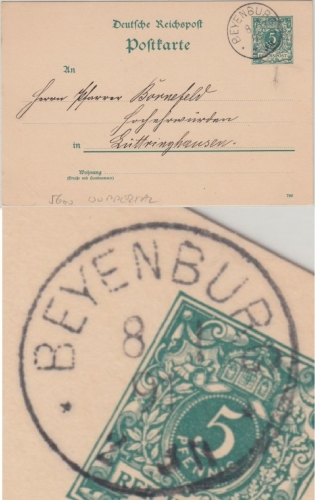 Deutsche Reichspost
Postkarte
BEYENBUR
8
5
An
Herrn Pfarrer Bornefeld
Hochehrwürden
in Lüttringhausen.
Wohnung
(Straße und Hausnummer)
5600 WUPPERTAL
BEYENBUR
8
5
PFENNIG
REI